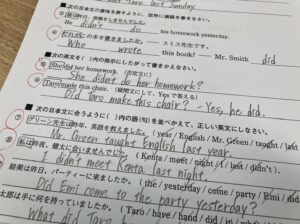 met Taro last Sunday.
② 次の日本文の意味を表すように、空所に適語を書きなさい。
He didn't do his homework yesterday.
Who wrote this book? — Mr. Smith did
③ 次の英文を( )内の指示にしたがって書きかえなさい。
⑤ She did her homework. (否定文に)
She didn't do her homework?
Did Taro make this chair? - Yes, he did.
⑦ 次の日本文に合うように( )内の語(句)を並べかえて、正しい英文にしなさい。
グリーン先生は昨年、英語を教えました。( year / English / Mr. Green /
Mr. Green taught English last year.
⑧ 私は昨夜、健太に会いませんでした。( Kenta / meet / night / I / last / didn't ).
I didn't meet Kenta last night.
絵美は昨日、パーティーに来ましたか。( the / yesterday / come / party / Emi / did
Did Emi come to the party yesterday?
太郎は手に何を持っていましたか。( Taro / have / hand / did / in /
What did Taro